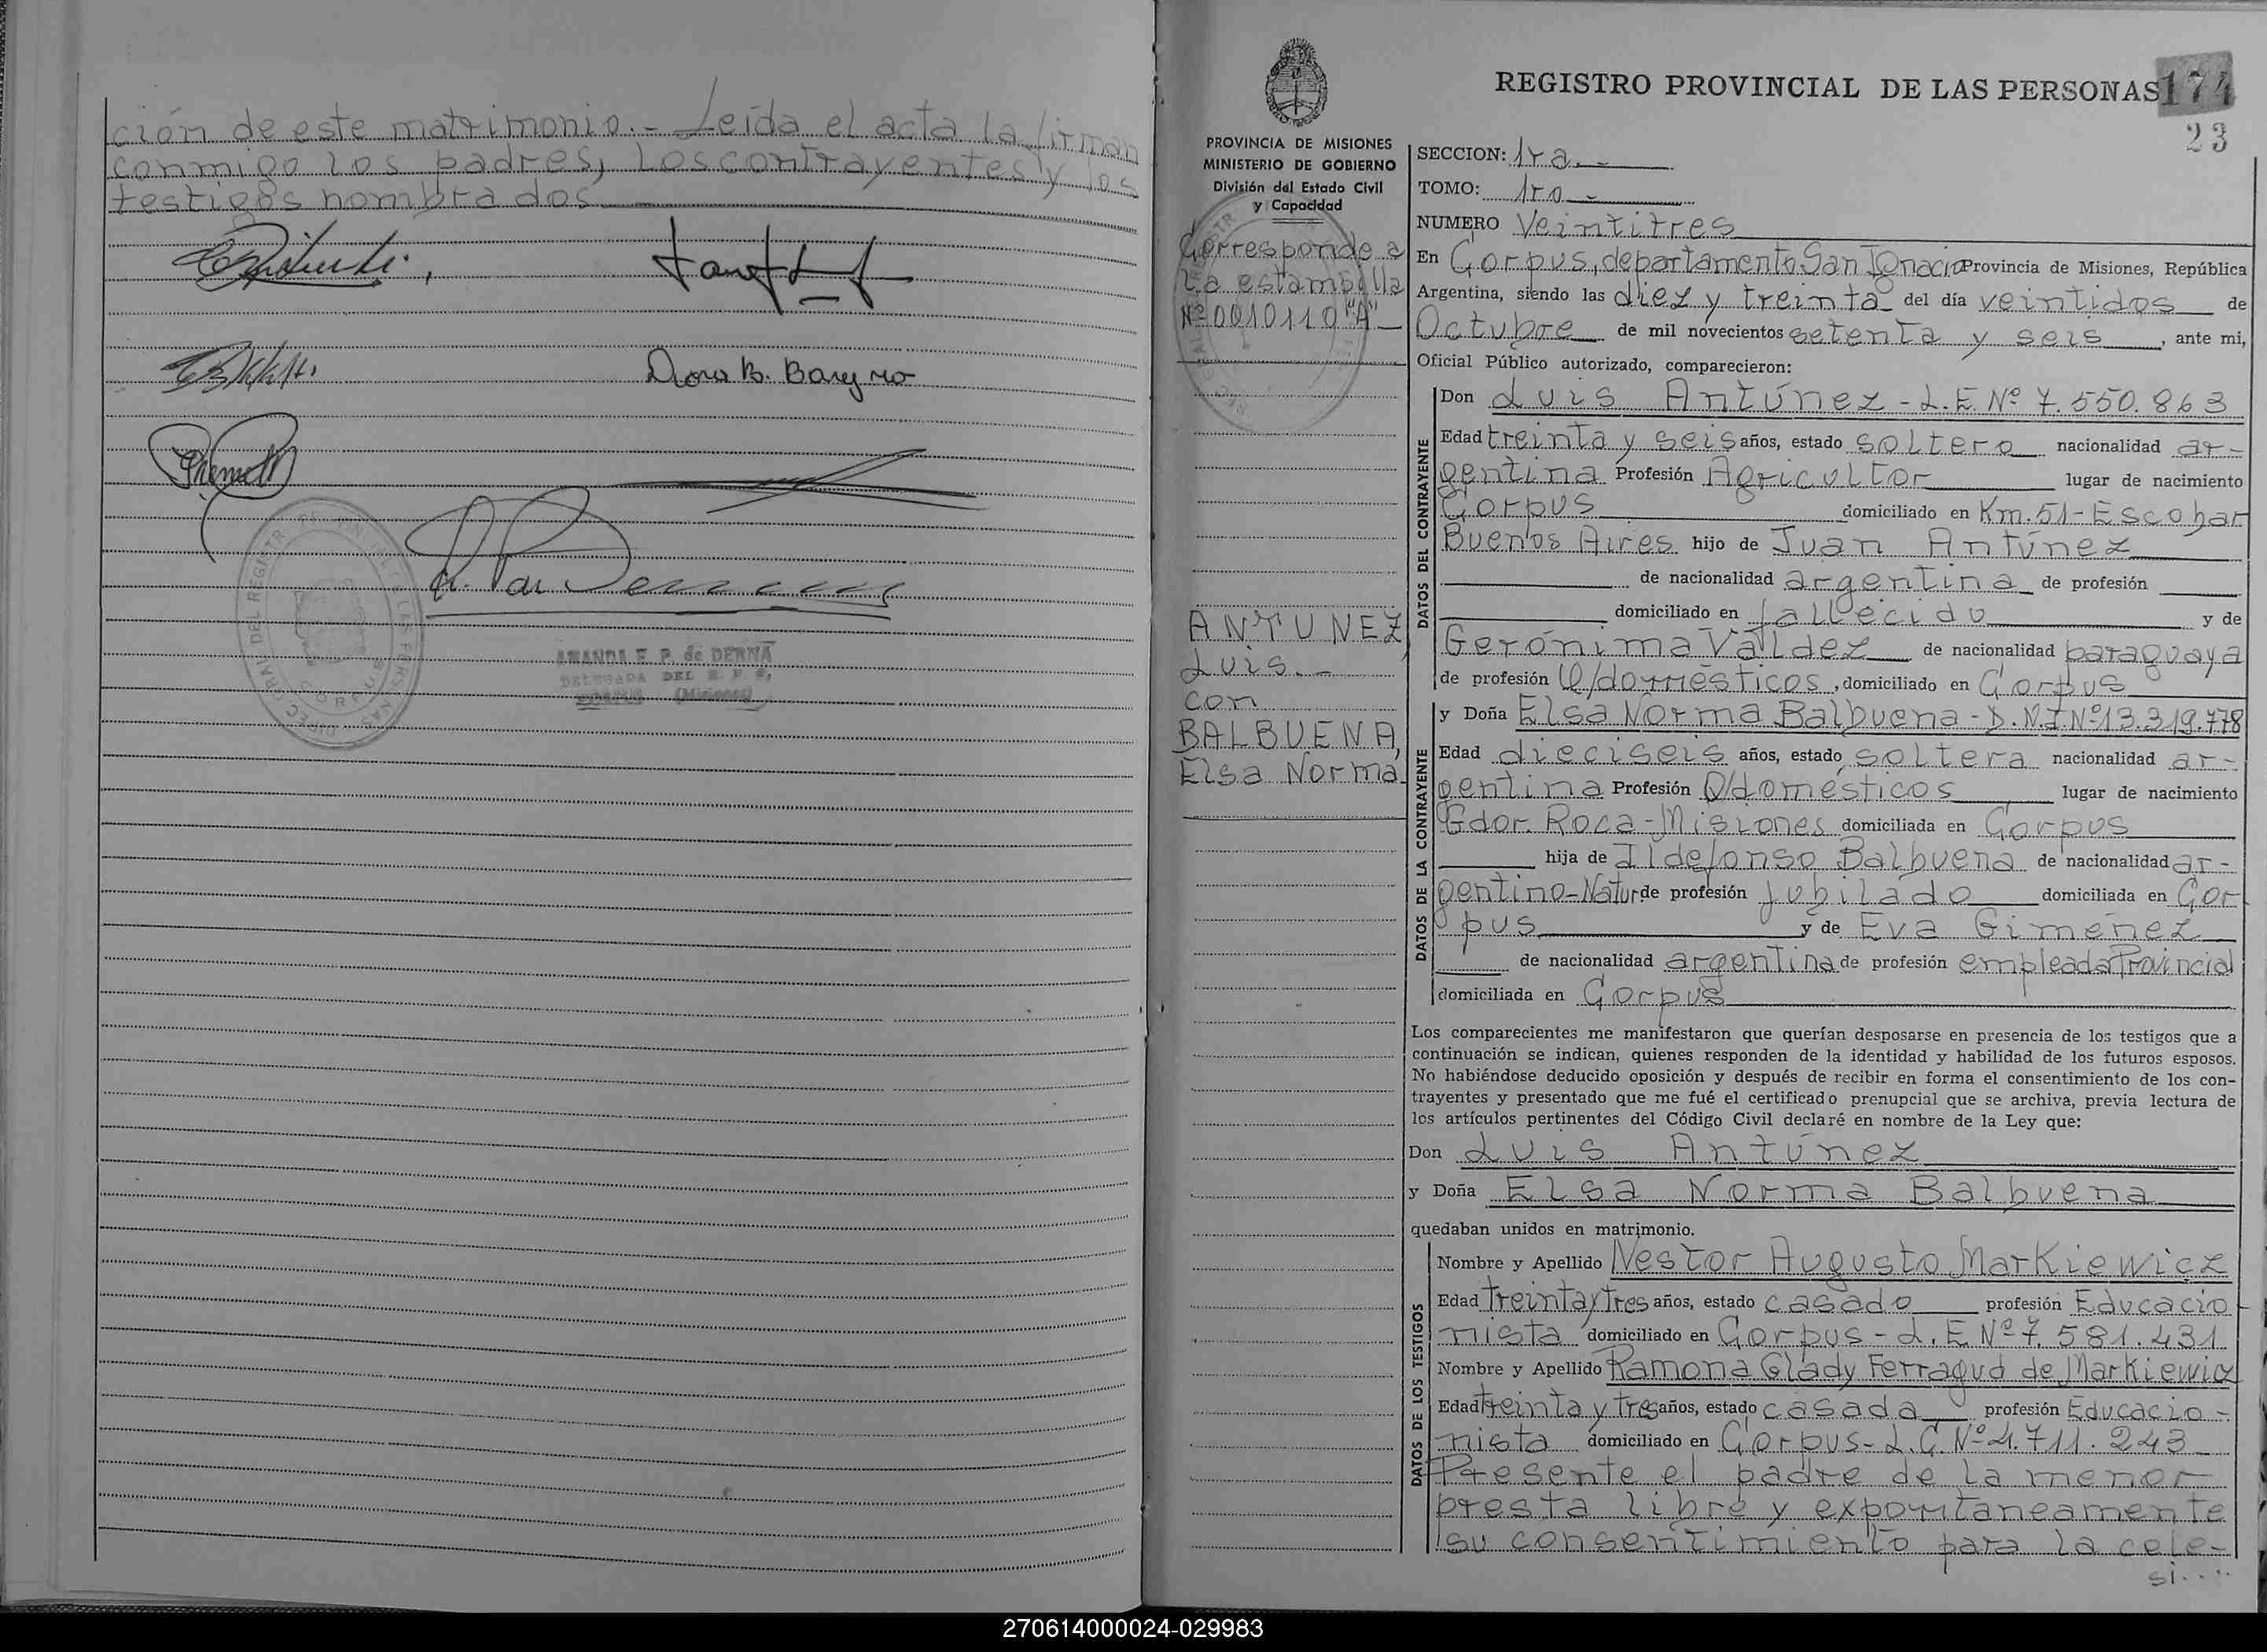 ción de este matrimonio.- Leída el acta la firman
conmigo los padres, los contrayentes y los
testigos nombrados
Dora B. Bareyro
AMANDA E. P. de DERNA
DELEGADA DEL R. P. P.
CORPUS (Misiones)
REGISTRO PROVINCIAL DE LAS PERSONAS 174
23
PROVINCIA DE MISIONES
MINISTERIO DE GOBIERNO
División del Estado Civil
y Capacidad
Corresponde a
la estampilla
Nº 0010110 "A"
ANTUNEZ,
Luis.-
con
BALBUENA,
Elsa Norma.
SECCION: 1ra.-
TOMO: 1ro.-
NUMERO Veintitres
En Corpus, departamento San Ignacio Provincia de Misiones, República
Argentina, siendo las diez y treinta del día veintidos de
Octubre de mil novecientos setenta y seis, ante mi,
Oficial Público autorizado, comparecieron:
DATOS DEL CONTRAYENTE
Don Luis Antúnez - L.E. Nº 7.550.863
Edad treinta y seis años, estado soltero nacionalidad ar-
gentina Profesión Agricultor lugar de nacimiento
Corpus domiciliado en Km.51-Escobar
Buenos Aires hijo de Juan Antúnez
de nacionalidad argentina de profesión
domiciliado en fallecido y de
Gerónima Valdez de nacionalidad paraguaya
de profesión Q/domésticos, domiciliado en Corpus
DATOS DE LA CONTRAYENTE
y Doña Elsa Norma Balbuena - D.N.I. Nº 13.319.778
Edad dieciseis años, estado soltera nacionalidad ar-
gentina Profesión Q/domésticos lugar de nacimiento
Gdor. Roca-Misiones domiciliada en Corpus
hija de Ildefonso Balbuena de nacionalidad ar-
gentino-Natur de profesión jubilado domiciliada en Cor
pus y de Eva Giménez
de nacionalidad argentina de profesión empleada Provincial
domiciliada en Corpus
Los comparecientes me manifestaron que querían desposarse en presencia de los testigos que a
continuación se indican, quienes responden de la identidad y habilidad de los futuros esposos.
No habiéndose deducido oposición y después de recibir en forma el consentimiento de los con-
trayentes y presentado que me fué el certificado prenupcial que se archiva, previa lectura de
los artículos pertinentes del Código Civil declaré en nombre de la Ley que:
Don Luis Antúnez
y Doña Elsa Norma Balbuena
quedaban unidos en matrimonio.
DATOS DE LOS TESTIGOS
Nombre y Apellido Nestor Augusto Markiewicz
Edad treinta y tres años, estado casado profesión Educacio
nista domiciliado en Corpus - L.E Nº 7.581.431
Nombre y Apellido Ramona Glady Ferragud de Markiewicz
Edad treinta y tres años, estado casada profesión Educacio-
nista domiciliado en Corpus - L.C. Nº 4.711.243
Presente el padre de la menor
presta libre y expontaneamente
su consentimiento para la cele-
si....
270614000024-029983